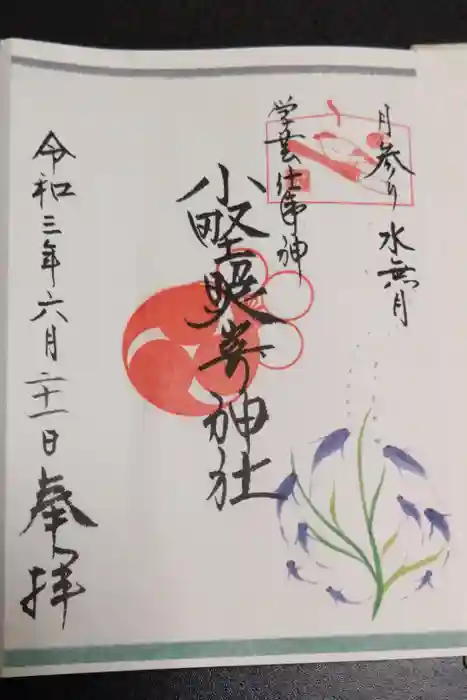 月参り 水無月
学芸仕事神
小野照崎神社
令和三年六月二十一日
奉拝